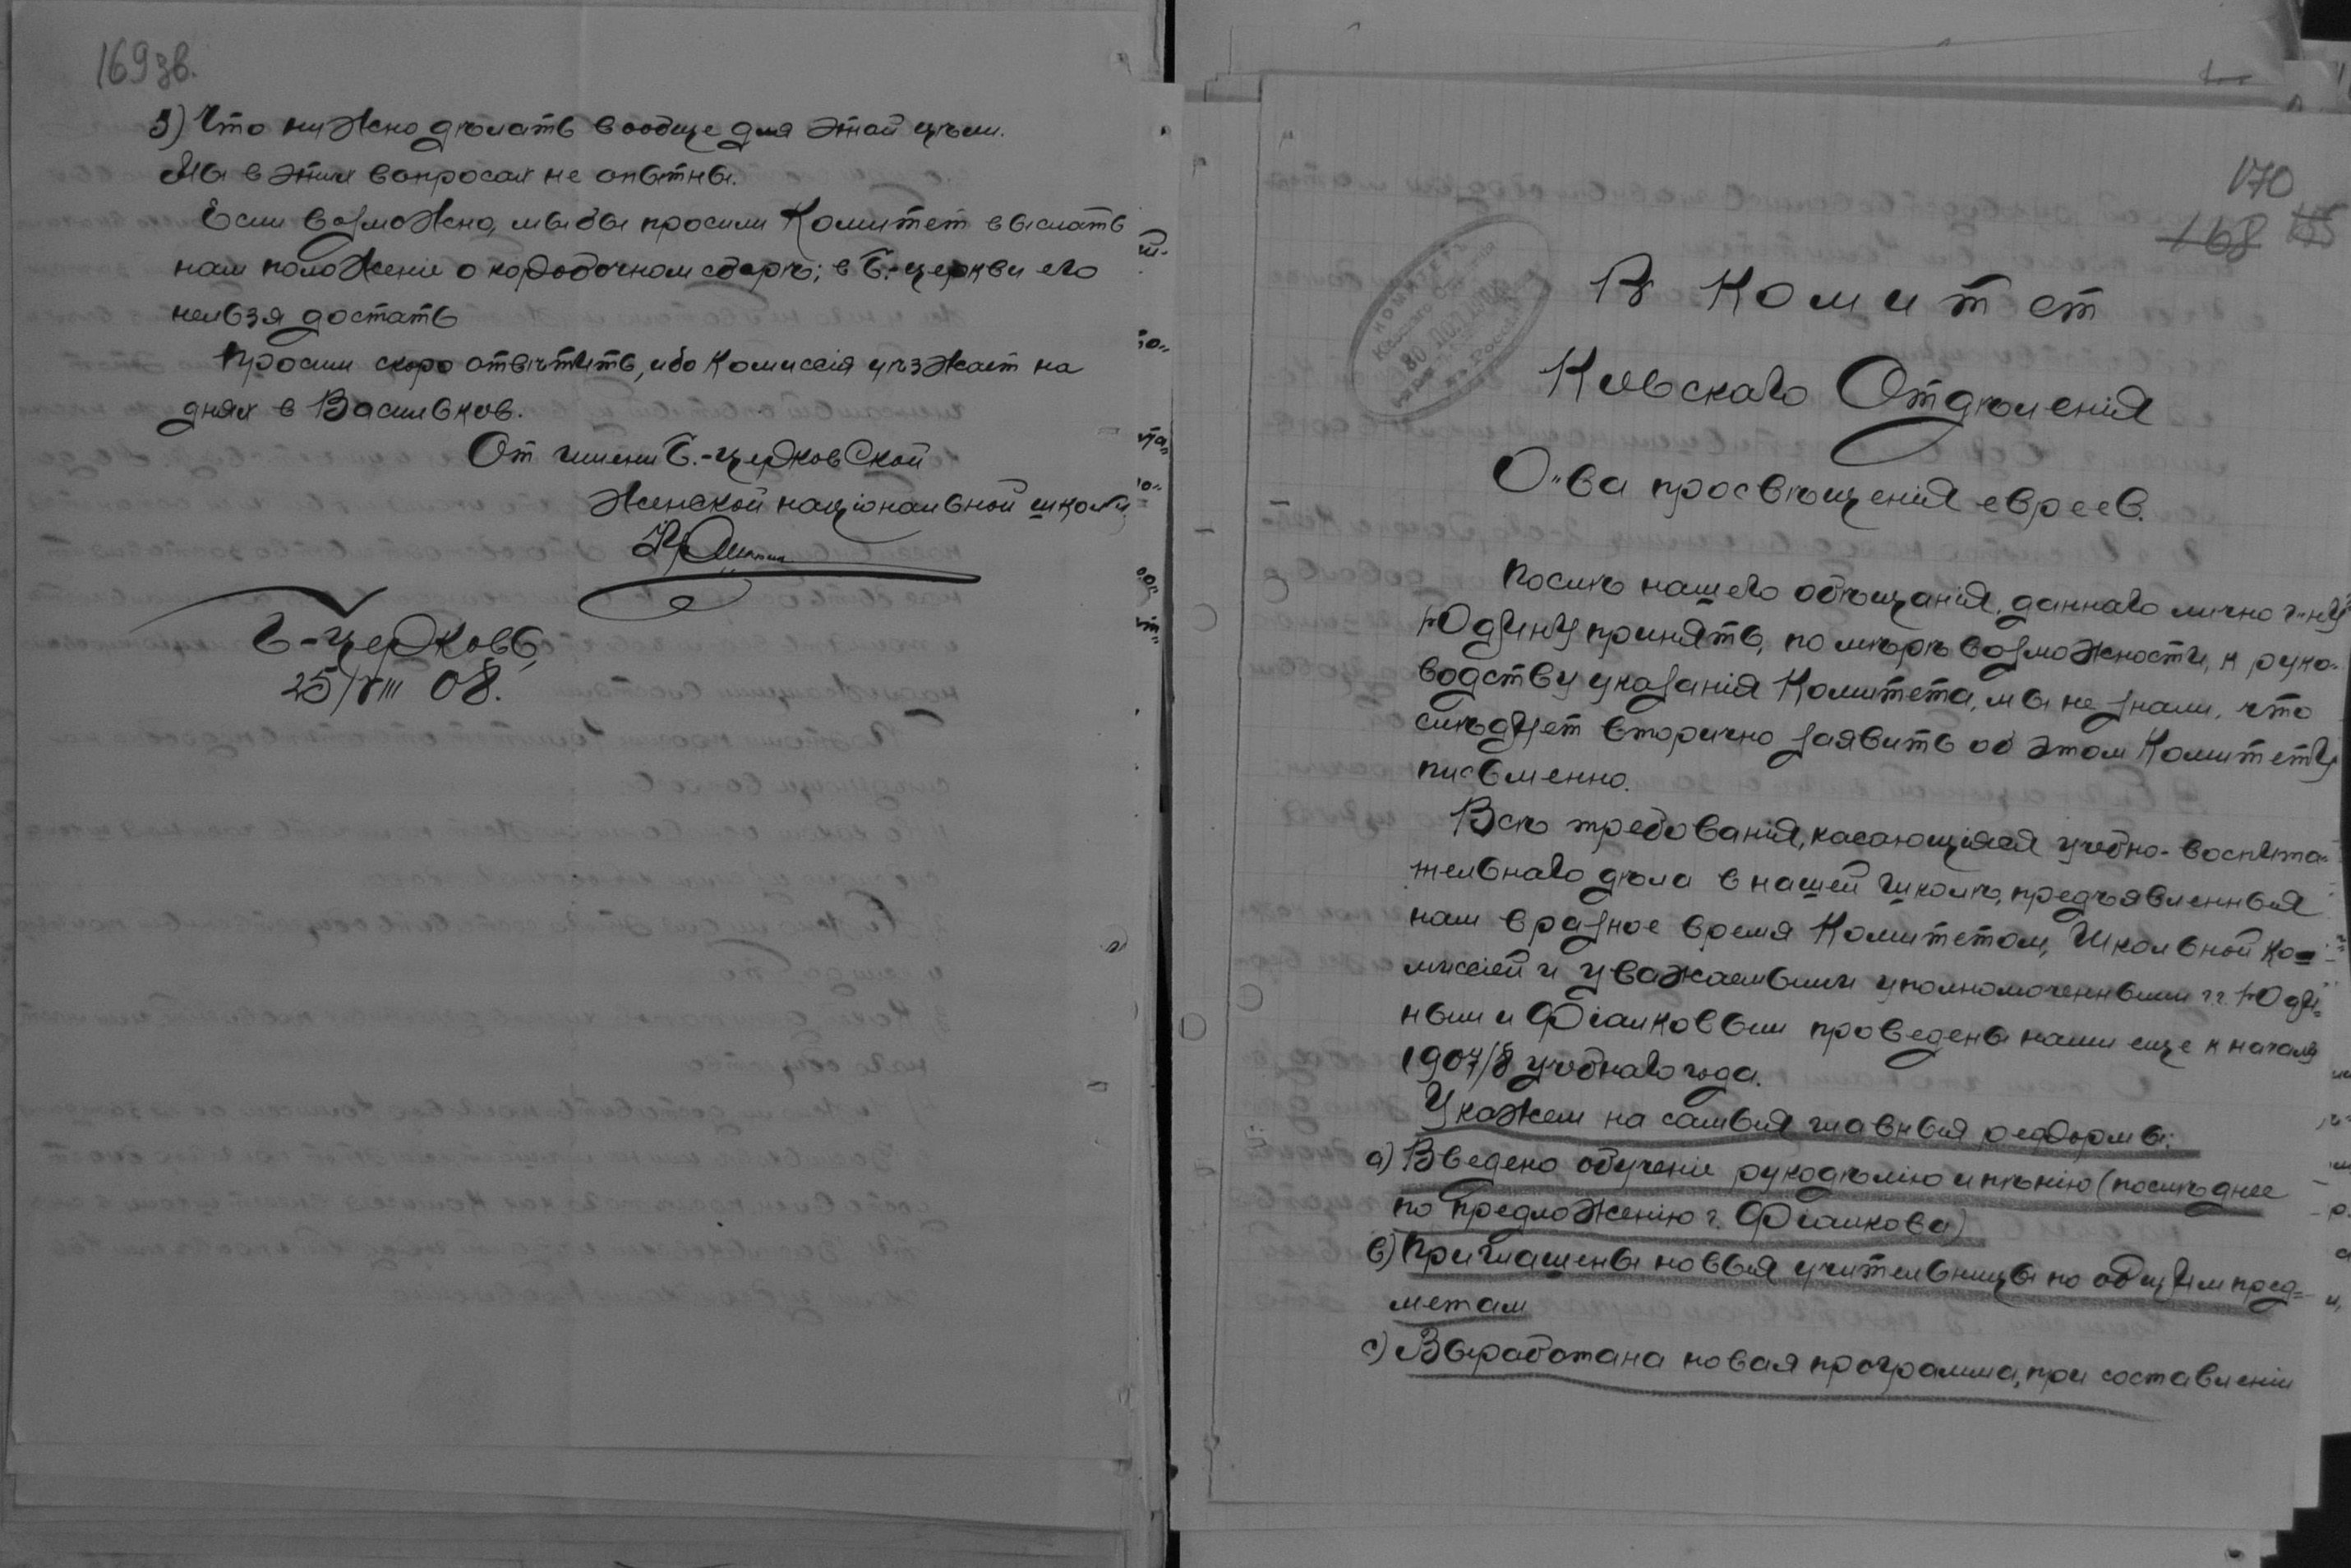 169 зв.
5) Что нужно дѣлать вообще для этой цѣли.
Мы в этих вопросах не опытны.
Если возможно, мы бы просили Комитет выслать
нам положеніе о коробочном сборѣ; в Б.-церкви его
нельзя достать
Просим скоро отвѣтить, ибо Комиссія уѣзжает на
днях в Васильков.
От имени Б.-церковской
Женской національной школы
Б-Церковь,
25/VIII 08.
170
168
165
В Комитет
Кіевскаго Отдѣленія
О-ва просвѣщенія евреев.
Послѣ нашего обѣщанія, даннаго лично г-ну
Юдину принять, по мѣрѣ возможности, к руко-
водству указанія Комитета, мы не знали, что
слѣдует вторично заявить об этом Комитету
письменно.
Всѣ требованія, касающіяся учебно-воспита-
тельнаго дѣла в нашей школѣ, предъявленныя
нам в разное время Комитетом, Школьной Ко-
миссіей и уважаемыми уполномоченными г.г. Юди-
ным и Фіалковым проведены нами еще к началу
1907/8 учебнаго года.
Укажем на самыя главныя реформы:
а) Введено обученіе рукодѣлію и пѣнію (послѣднее
по предложенію г. Фіалкова)
в) Приглашены новыя учительницы по общим пред-
метам
с) Выработана новая программа, при составленіи